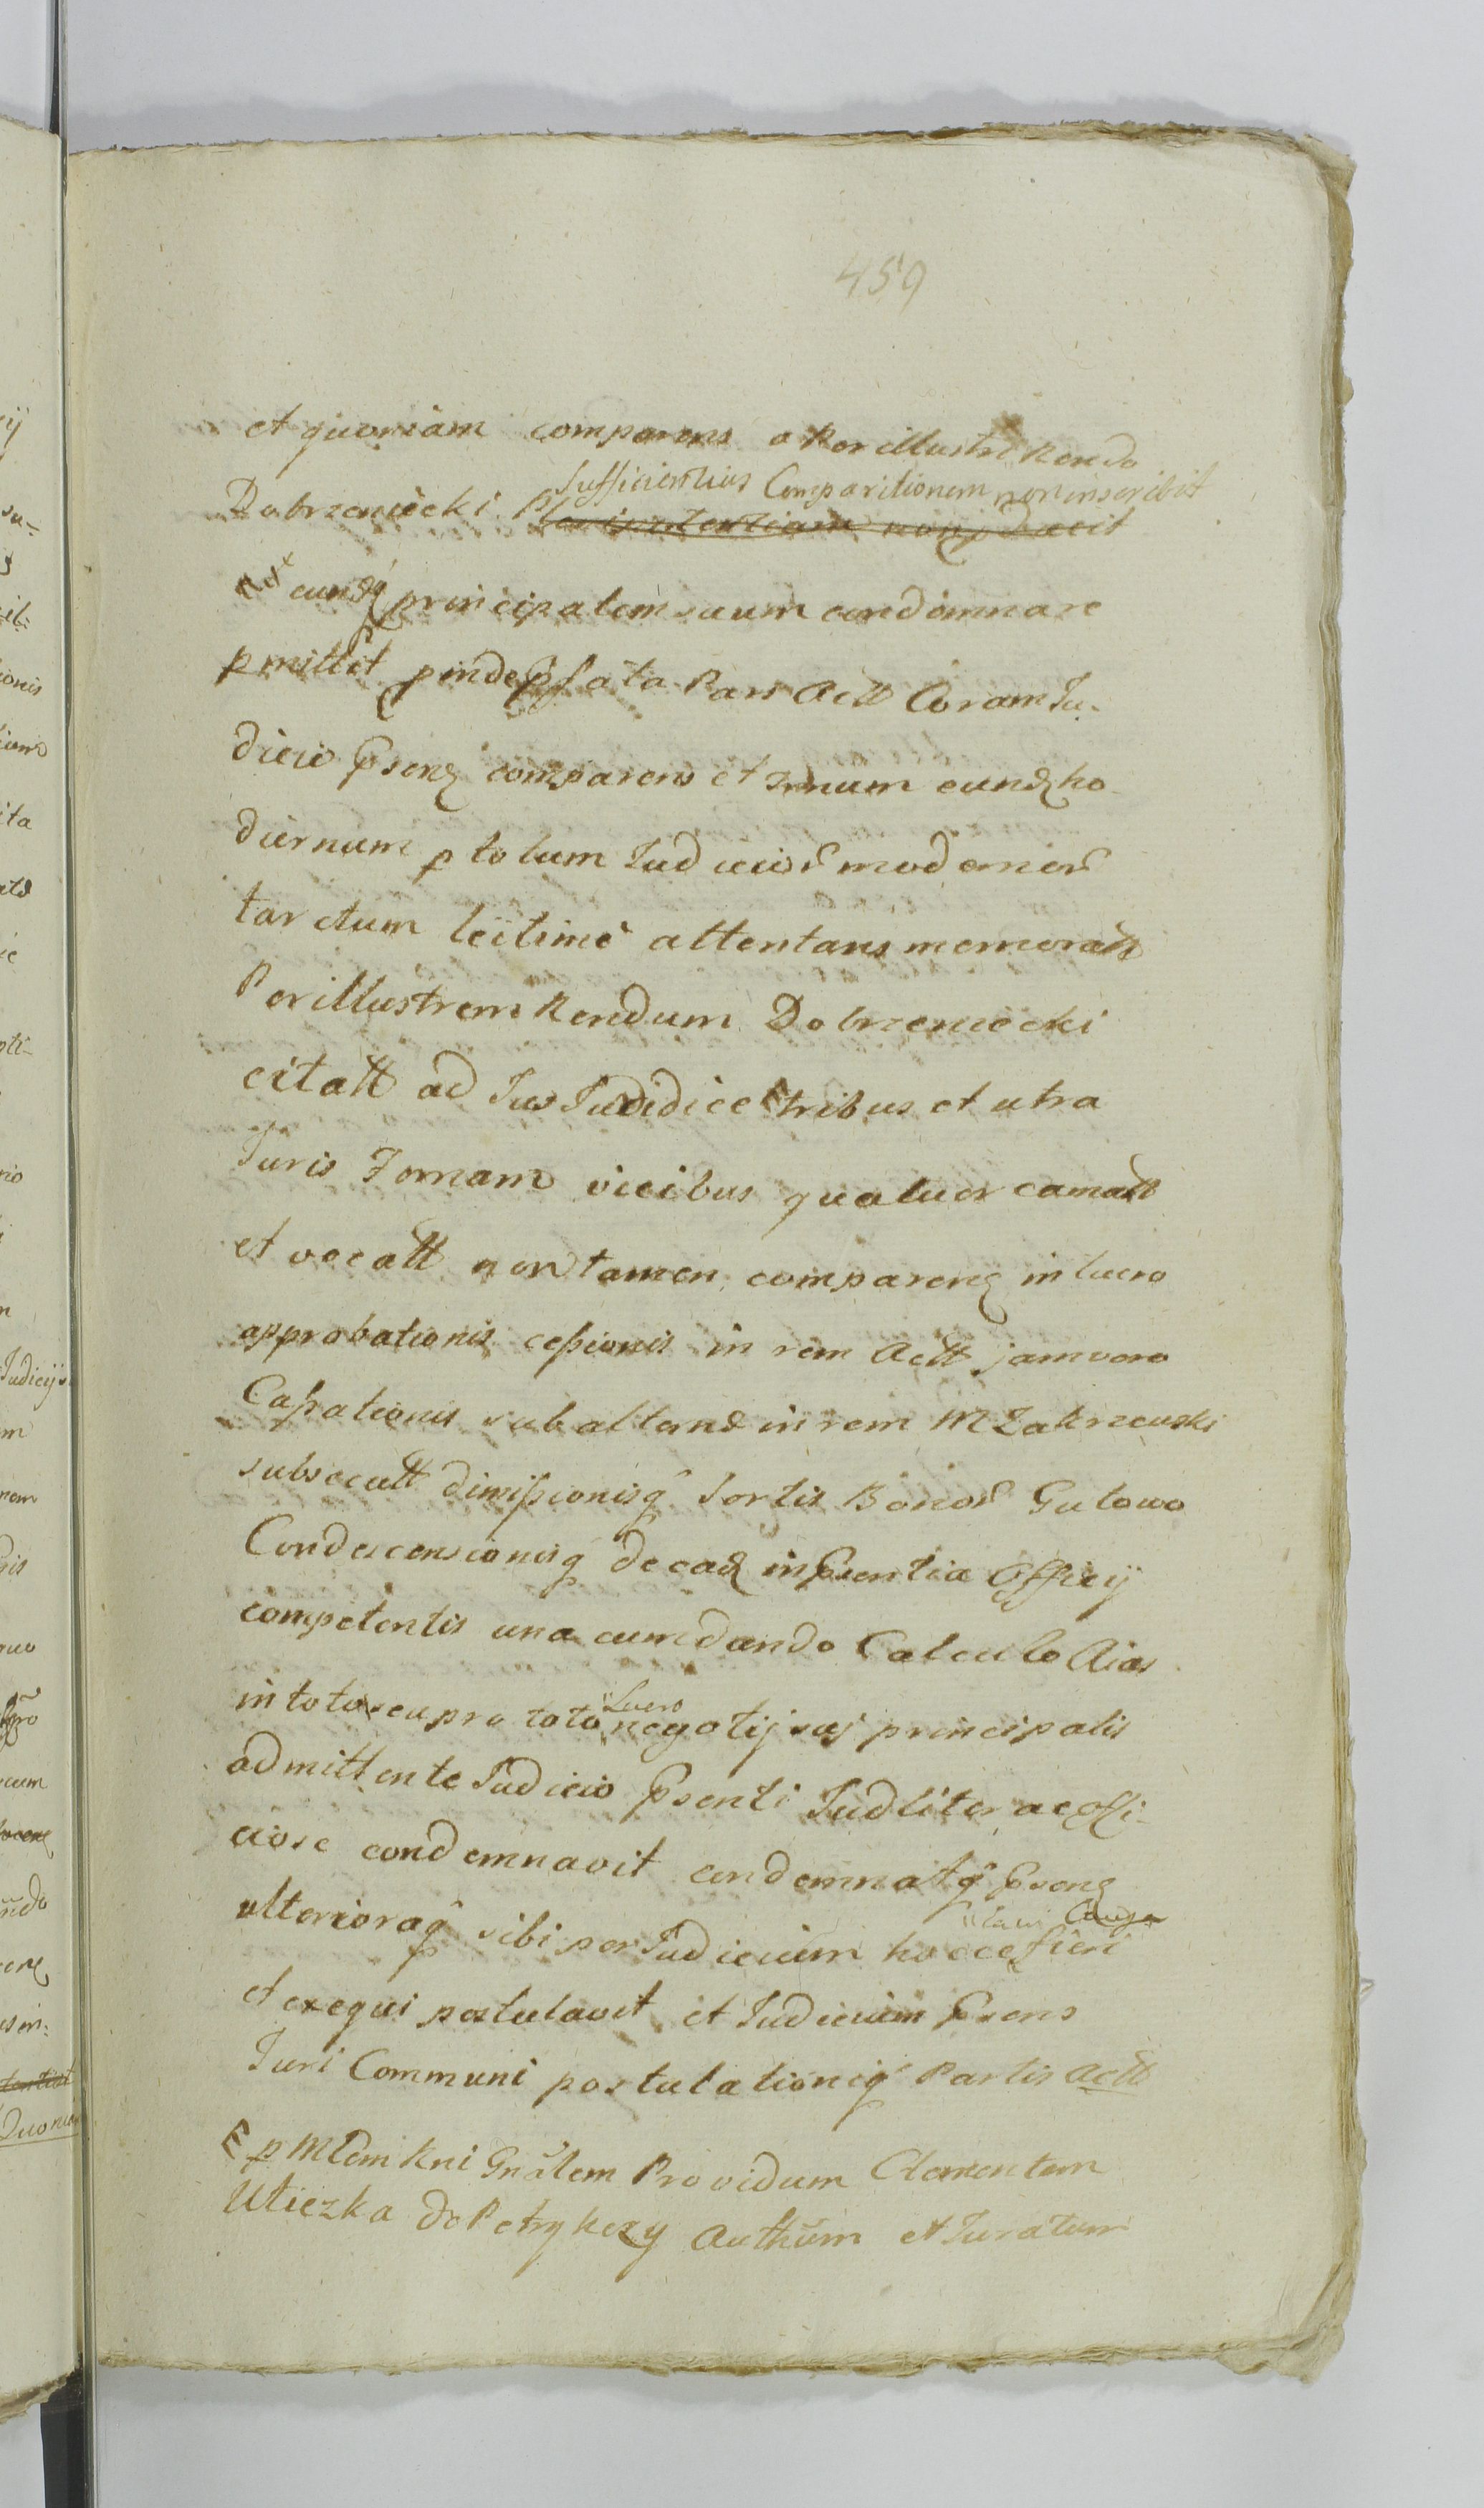 459
et quoniam comparens a Perillustri Rendo
Sufficientius Comparitionem non inscribit
Dobrzeniecki
eundq principalem suum condemnare
pmittit pinde psata Pars Actt Coram Ju-
dicio Psenȝ comparens et Trnum eundȝ ho
diernum p totum Judicior modernor
tarctum leitime attentans memoratt
Perillustrem Rendum Dobrzeniecki
citatt ad Jus Judidice tribus et utra
Juris Formam vicibus quatuor camatt
et vocatt non tamen comparenȝ in lucro
approbationis cessionis in rem Actt jam vero
Cassationis subalternæ in rem M Zakrzewski
subsecutt dimissionisq Sortis Bonor Gulowo
Condescensionisq de eadȝ in Psentia Officij
competentis una cum dando Calculo Aias
Lucro
in toto seu pro toto negotij sui principalis
admittente Judicio Psenti Judliter ac offi-
ciose condemnavit condemnatq Psenȝ
ulterioraq sibi per Judicium hocce fieri
et exequi postulavit et Judicium Psens
Juri Communi postulationiq Partis Actt
p Mlem Rni Gnalem Providum Clementem
Uliczka de Petrykozy Authum et Juratum